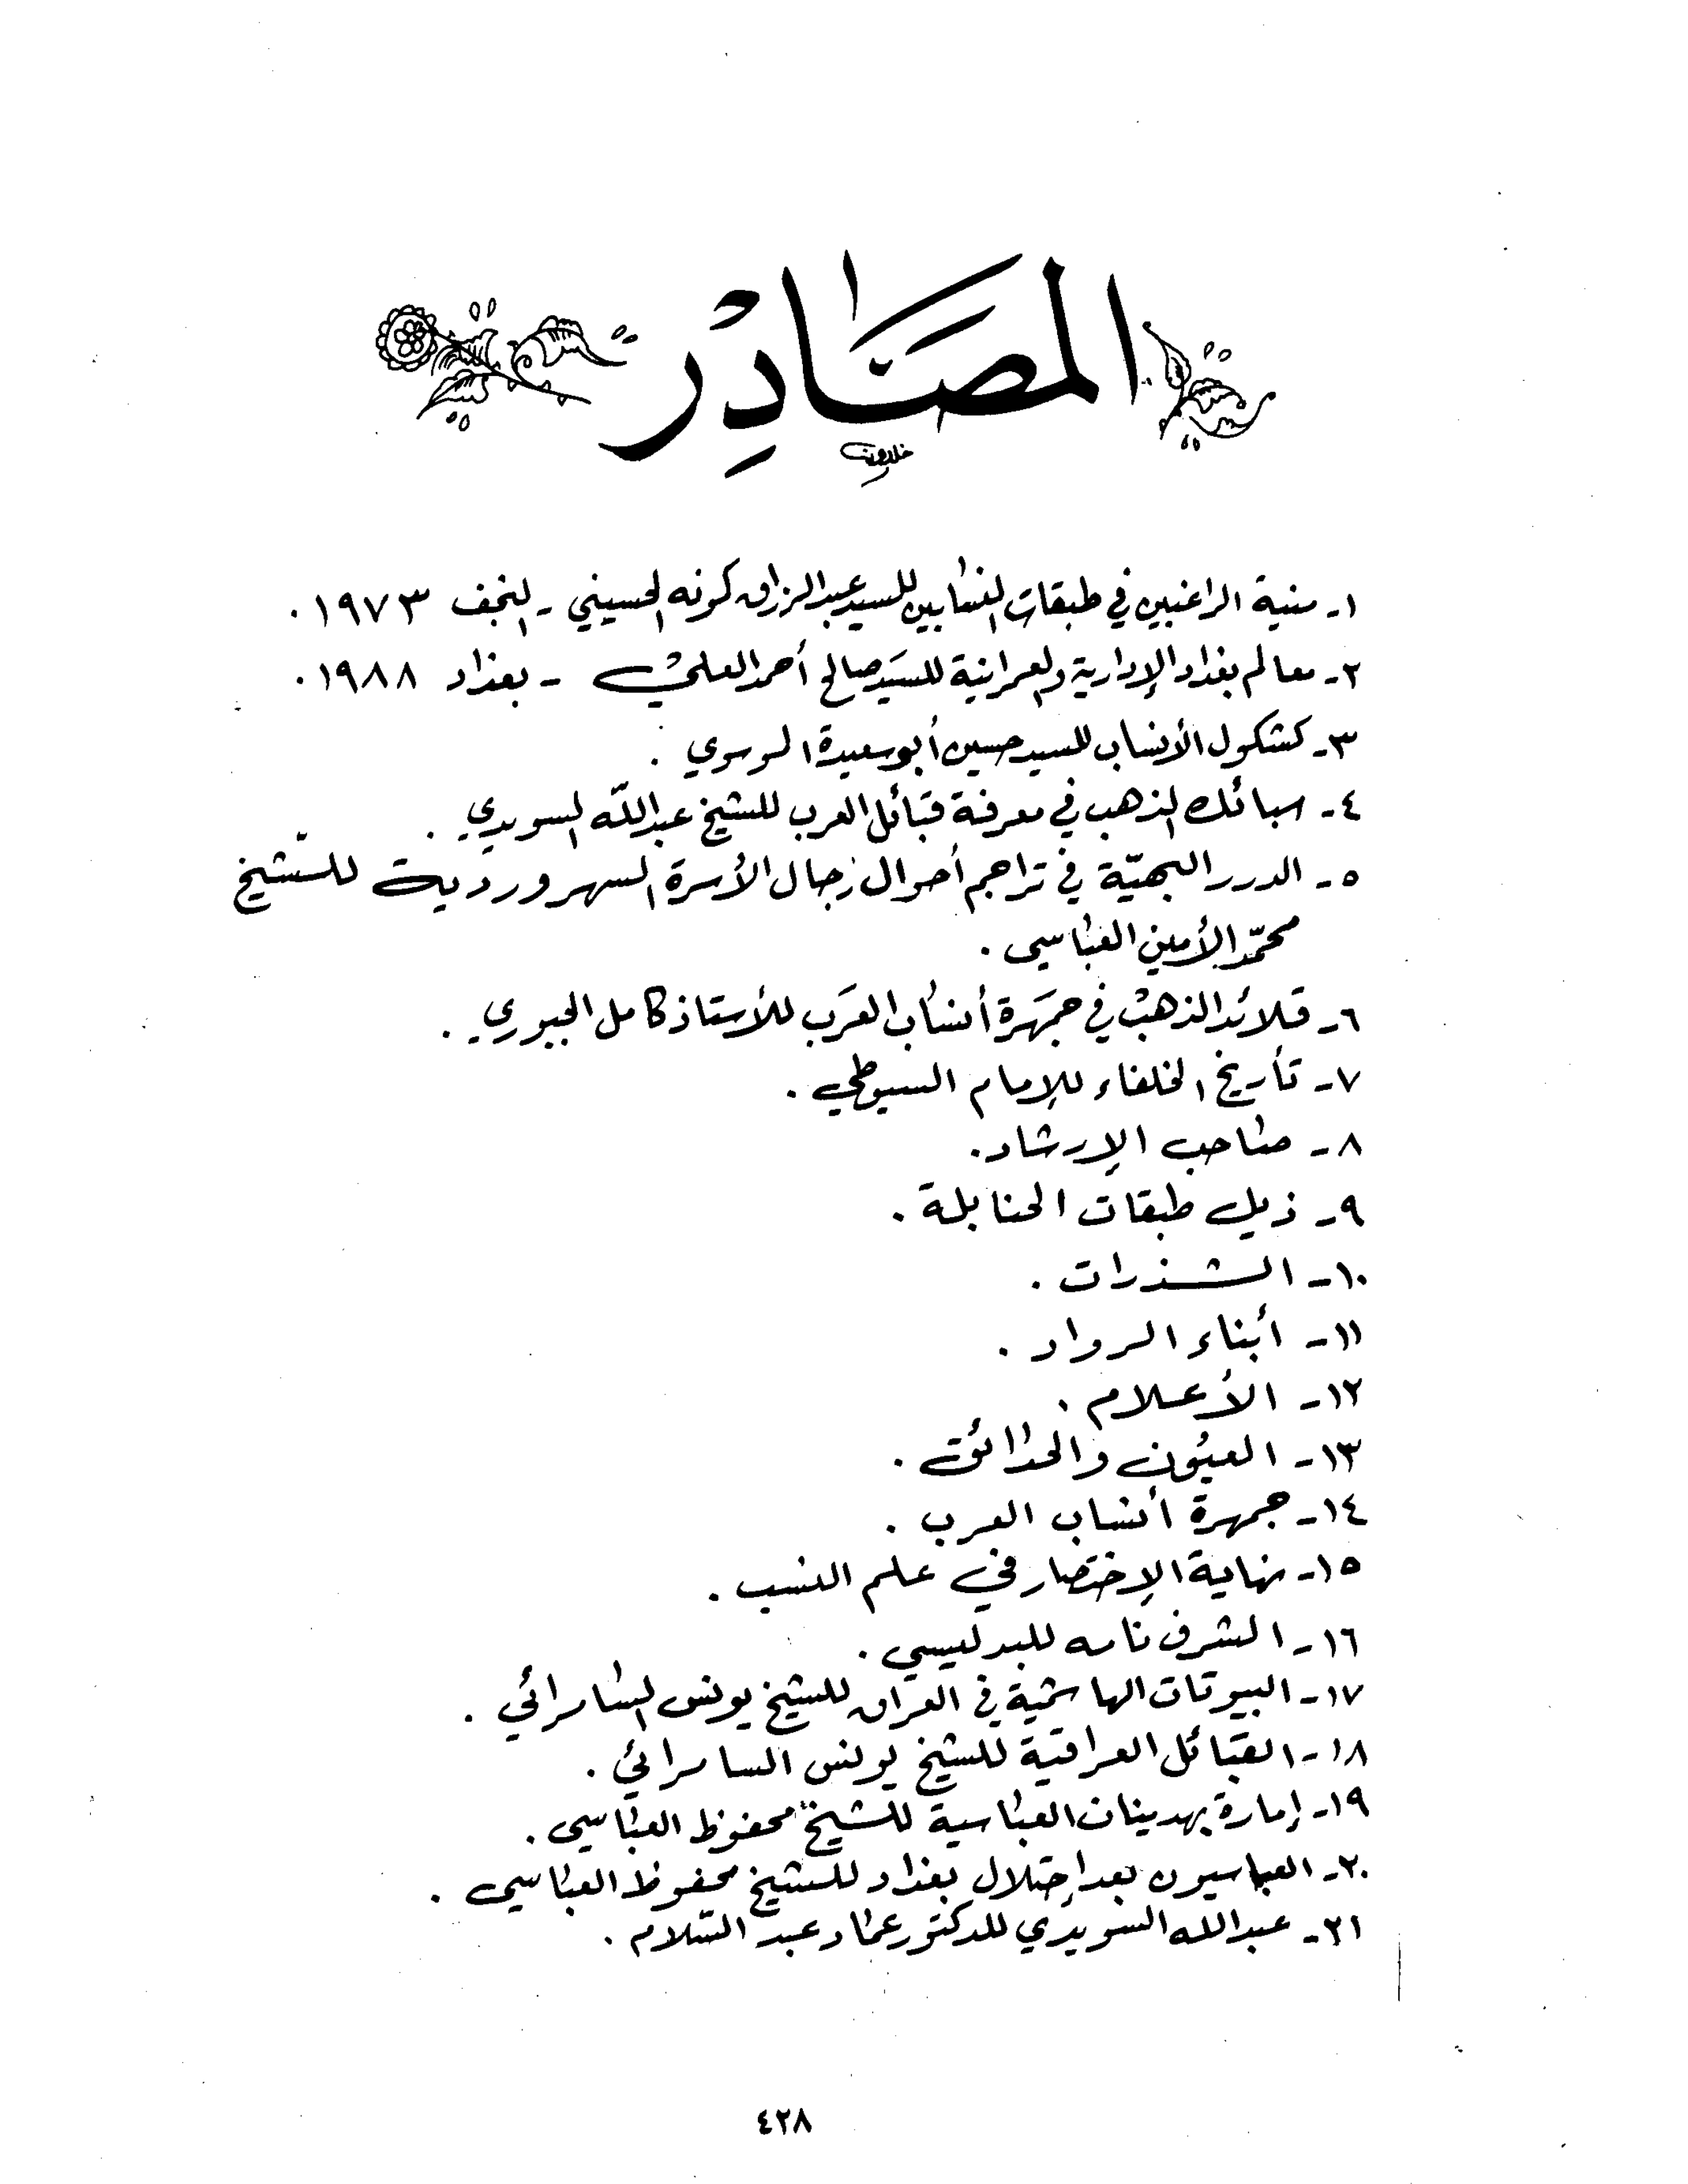 المصَادِرْ
خلدون
١- منية الراغبين في طبقات النسابين للسيد عبدالرزاق كمونه الحسيني - النجف ١٩٧٣ .
٢- معالم بغداد الإدارية والعمرانية للسَيد صالح أحمد العلي - بغداد ١٩٨٨ .
٣- كشكول الأنساب للسيد حسين أبو سعيدة الموسوي .
٤- سبائك الذهب في معرفة قبائل العرب للشيخ عبداللّه السويدي .
٥- الدرر البهيّة في تراجم أحوال رجال الأسرة السهروردية للشّيخ
محمّد الأمين العباسي .
٦- قلائد الذهب في جمَهرة أنساب العَرَب للأستاذ كامل الجبوري .
٧- تأريخ الخلفاء للإمام السيوطي .
٨- صاحب الإرشاد .
٩- ذيل طبقات الحنابلة .
١٠- الشذرات .
١١- أنباء الرواد .
١٢- الأعلام .
١٣- العيُون والحدائق .
١٤- جمهرة أنساب العرب .
١٥- نهاية الإختصار في علم النسب .
١٦- الشرف نامه للبدليسي .
١٧- البيوتات الهاشمية في العراق للشيخ يونس السامرائي .
١٨- القبائل العراقية للشيخ يونس السامرائي .
١٩- إمارة بهدينان العباسية للشيخ محفوظ العباسي .
٢٠- العباسيون بعد إحتلال بغداد للشيخ محفوظ العباسي .
٢١- عبدالله السويدي للدكتور عماد عبد السّلام .
٤٢٨